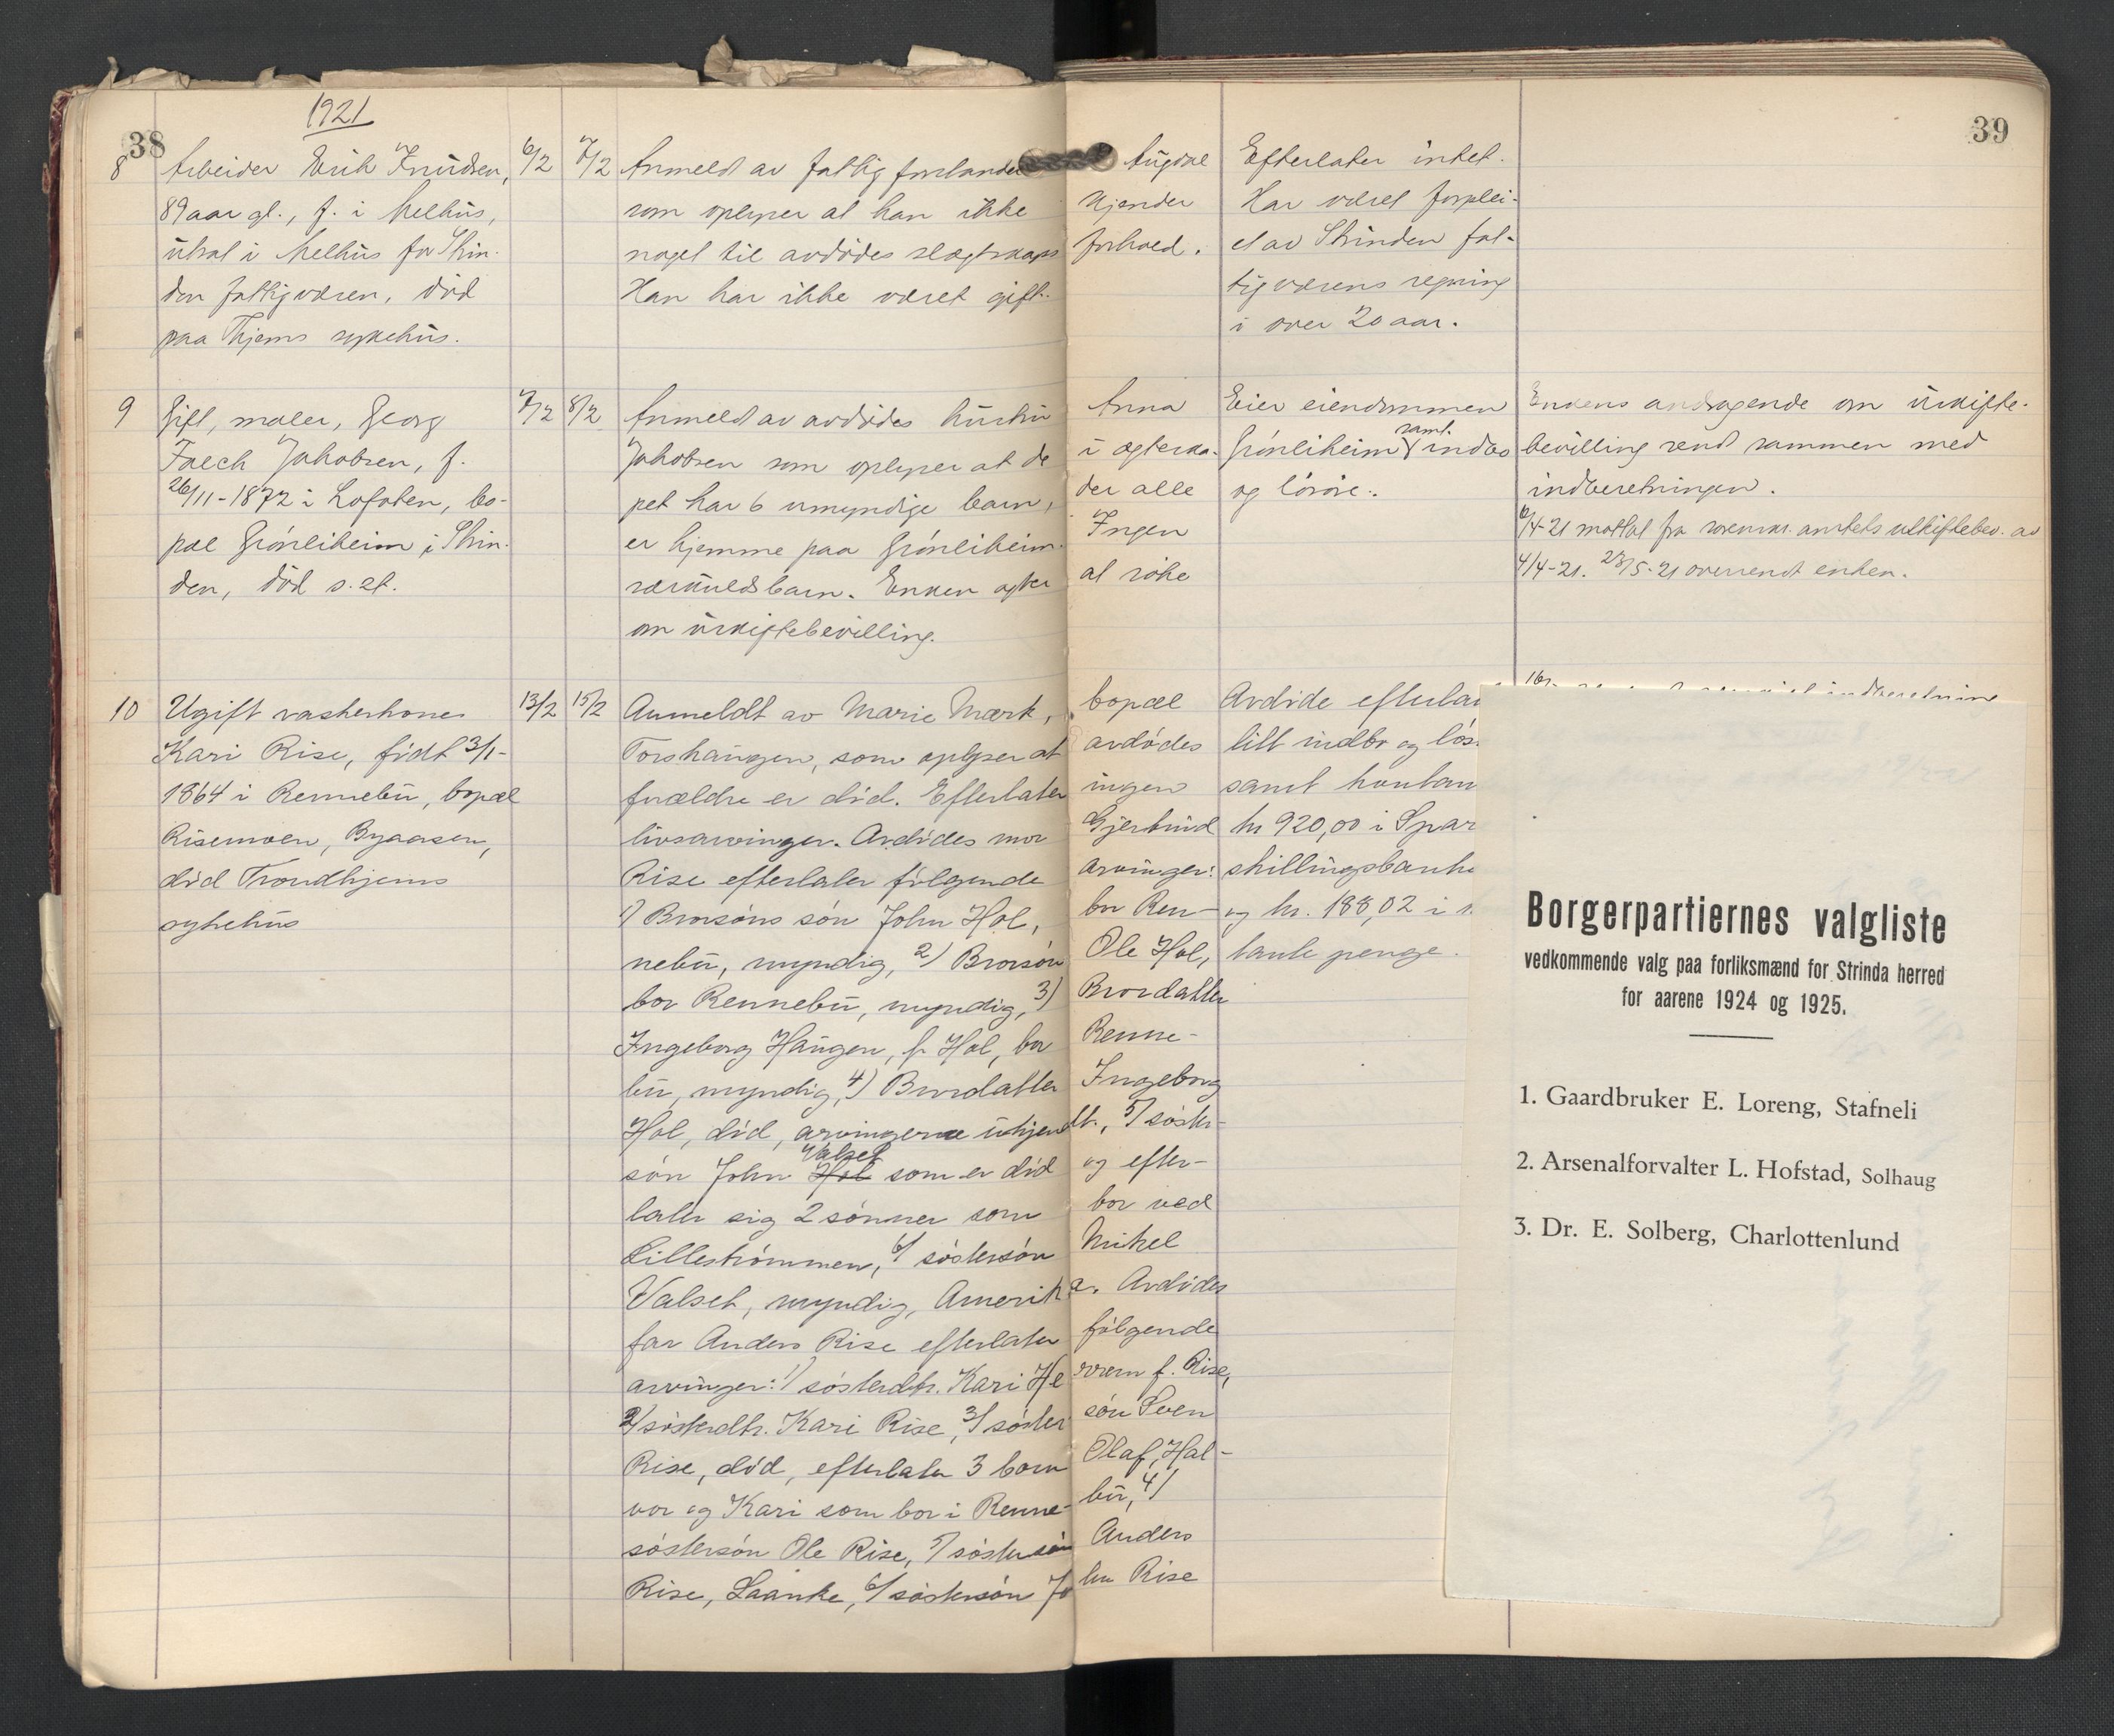 38
1921
8
Arbeider Erik Knudsen,
89 aar gl., f. i Melhus,
utsat i Melhus for Strin-
den fattigvæsen, død
paa Thjems sykehus.
6/2
7/2
Anmeldt av fattigforstander Augdal
som oplyser at han ikke kjender
noget til avdødes slegtskapsforhold.
Han har ikke været gift.
Efterlater intet.
Har været forplei-
et av Strinden fat-
tigvæsens regning
i over 20 aar.
9
Gift, maler, Georg
Jakobsen, f.
26/11-1872 i Lofoten, bo-
pæl Grønliheim i Strin-
den, død s. st.
7/2
8/2
Anmeldt av avdødes hustru Anna
Jakobsen som oplyser at de i ægteska-
pet har 6 umyndige barn, der alle
er hjemme paa Grønliheim. Ingen
særkuldsbarn. Enken agter at søke
om uskiftebevilling.
Eier eiendommen
Grønliheim samt indbo
og løsøre.
Enkens andragende om uskifte-
bevilling sendt sammen med
indberetningen.
6/4-21 mottat fra sorenskr. amtets uskiftebev. av
4/4-21. 28/5-21 oversendt enken.
10
Ugift vaskerkone
Kari Rise, født 3/1-
1864 i Rennebu, bopæl
Risemoen, Byaasen,
død Trondhjems
sykehus
13/2
15/2
Anmeldt av Marie Mærk, bopæl
Torshaugen, som oplyser at avdødes
forældre er død. Efterlater ingen
livsarvinger. Avdødes mor Gjertrud
Rise efterlater følgende arvinger:
1) Brorsøns søn John Hol, bor Ren-
nebu, myndig, 2) Brorsøn Ole Hol,
bor Rennebu, myndig, 3) Brordatter
Ingeborg Haugen, f. Hol, bor Renne-
bu, myndig, 4) Brordatter Ingeborg
Hol, død, arvingerne ukjendt., 5) søster-
søn John Hol Valset som er død og efter-
later sig 2 sønner som bor ved
Lillestrømmen, 6) søstersøn Mikel
Valset, myndig, Amerika. Avdødes
far Anders Rise efterlater følgende
arvinger: 1) søsterdtr. Kari f. Rise,
2) søsterdtr. Kari Rise, 3) søstersøn Sven
Rise, død, efterlater 3 barn Olaf, Hal-
vor og Kari som bor i Rennebu, 4)
søstersøn Ole Rise, 5) søstersøn Anders
Rise, Laanke, 6) søstersøn John Rise
Avdøde
litt indbo og
samt
kr 920,00 i Spar
skillingsbanke
og kr. 188,02 i
tante penge.
39
Borgerpartiernes valgliste
vedkommende valg paa forliksmænd for Strinda herred
for aarene 1924 og 1925.
1. Gaardbruker E. Loreng, Stafneli
2. Arsenalforvalter L. Hofstad, Solhaug
3. Dr. E. Solberg, Charlottenlund